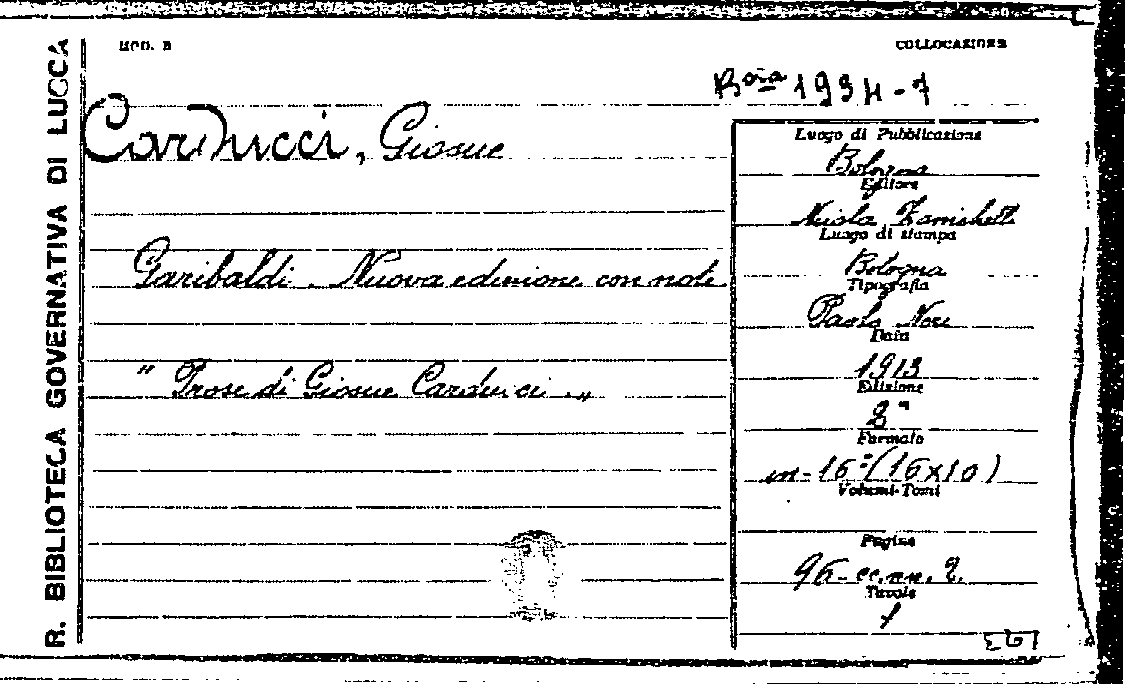 R. BIBLIOTECA GOVERNATIVA DI LUCCA
MOD. B
COLLOCAZIONE
Bᵒⁿᵃ 1934-7
Carducci, Giosue
Garibaldi. Nuova edizione con note
" Prose di Giosue Carducci „
Luogo di Pubblicazione
Bologna
Editore
Nicola Zanichelli
Luogo di stampa
Bologna
Tipografia
Paolo Neri
Data
1913
Edizione
2ª
Formato
in-16° (16x10)
Volumi-Tomi
Pagine
96-cc.nn. 2.
Tavole
1